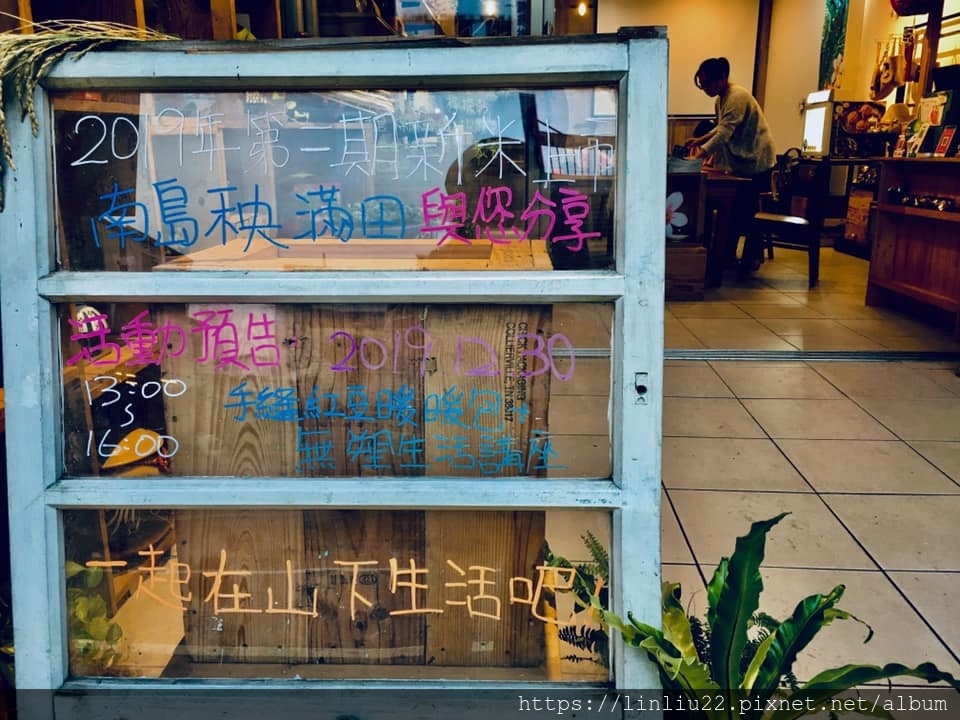 2019年第一期新米上市
南島秧滿田與您分享
活動預告 2019.12.30
13:00
~
16:00
手縫紅豆暖暖包+
無塑生活講座
一起在山下生活吧!
https://linliu22.pixnet.net/album